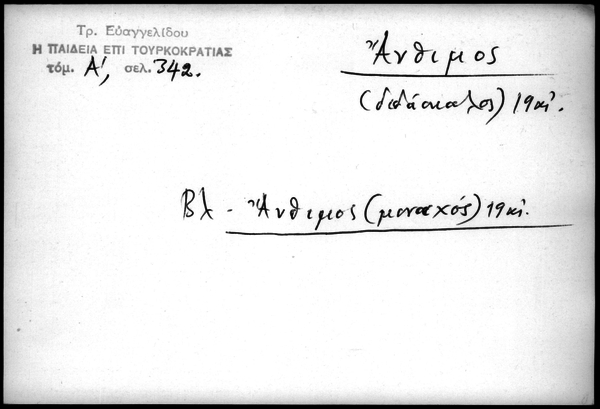 Τρ. Εὐαγγελίδου
Η ΠΑΙΔΕΙΑ ΕΠΙ ΤΟΥΡΚΟΚΡΑΤΙΑΣ
τόμ. Α', σελ. 342.
Ἄνθιμος
(διδάσκαλος) 19 αἰ.
Βλ - Ἄνθιμος (μοναχός) 19 αἰ.